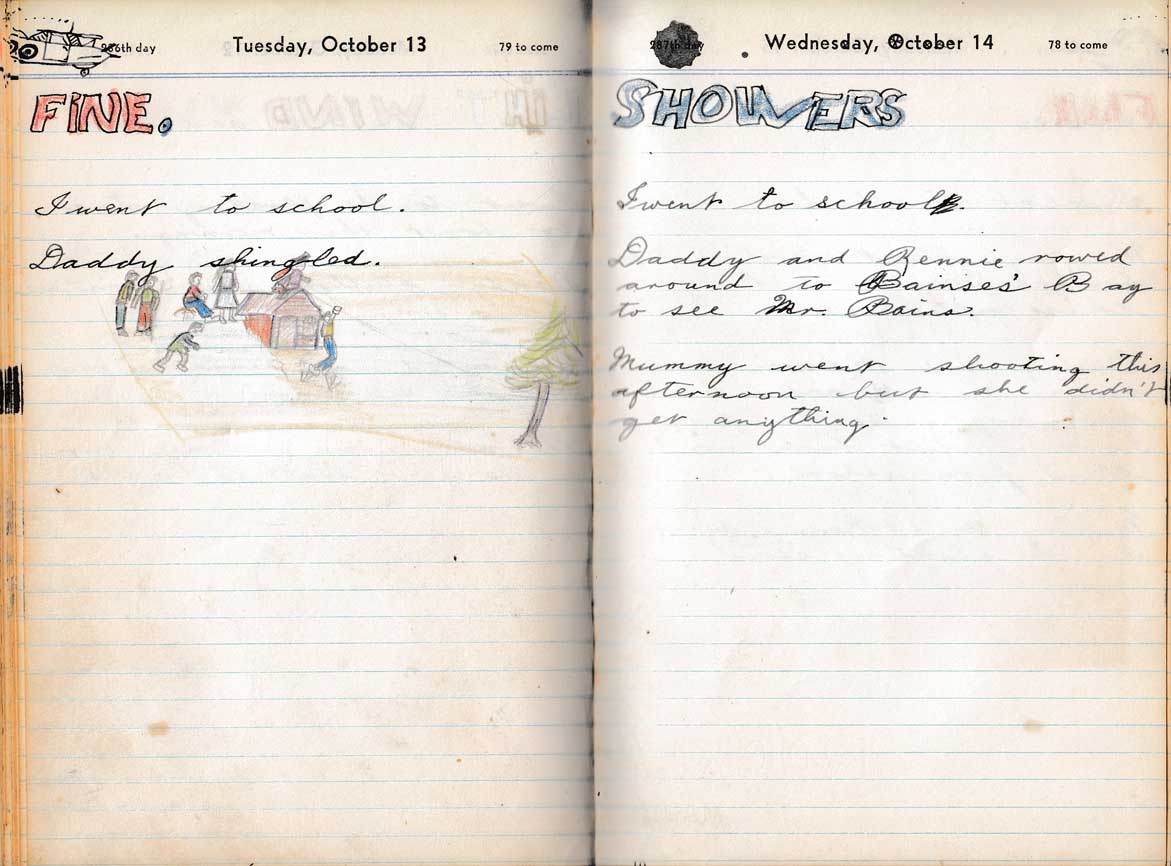 286th day Tuesday, October 13 79 to come
FINE.
I went to school.
Daddy shingled.
287th day Wednesday, October 14 78 to come
SHOWERS
I went to school.
Daddy and Rennie rowed
around to Bainses' Bay
to see Mr. Bains.
Mummy went shooting this
afternoon but she didn't
get anything.